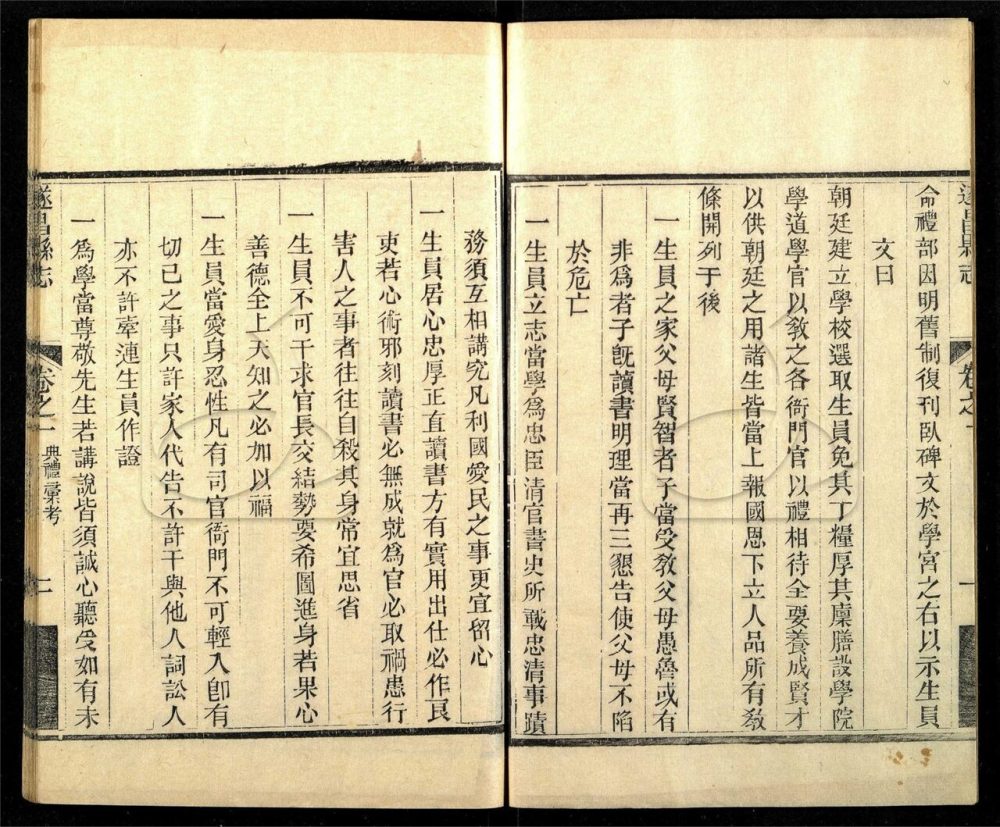 遂昌縣志
卷之一
一
命禮部因明舊制復刊臥碑文於學宮之右以示生員
文曰
朝廷建立學校選取生員免其丁糧厚其廩膳設學院
學道學官以敎之各衙門官以禮相待全要養成賢才
以供朝廷之用諸生皆當上報國恩下立人品所有敎
條開列于後
一生員之家父母賢智者子當受敎父母愚魯或有
非爲者子旣讀書明理當再三懇告使父母不陷
於危亡
一生員立志當學爲忠臣清官書史所載忠清事蹟
務須互相講究凡利國愛民之事更宜留心
一生員居心忠厚正直讀書方有實用出仕必作良
吏若心術邪刻讀書必無成就爲官必取禍患行
害人之事者往往自殺其身常宜思省
一生員不可干求官長交結勢要希圖進身若果心
善德全上天知之必加以福
一生員當愛身忍性凡有司官衙門不可輕入卽有
切已之事只許家人代告不許干與他人詞訟人
亦不許牽連生員作證
一爲學當尊敬先生若講說皆須誠心聽受如有未
遂昌縣志
卷之一
典禮彙考
二